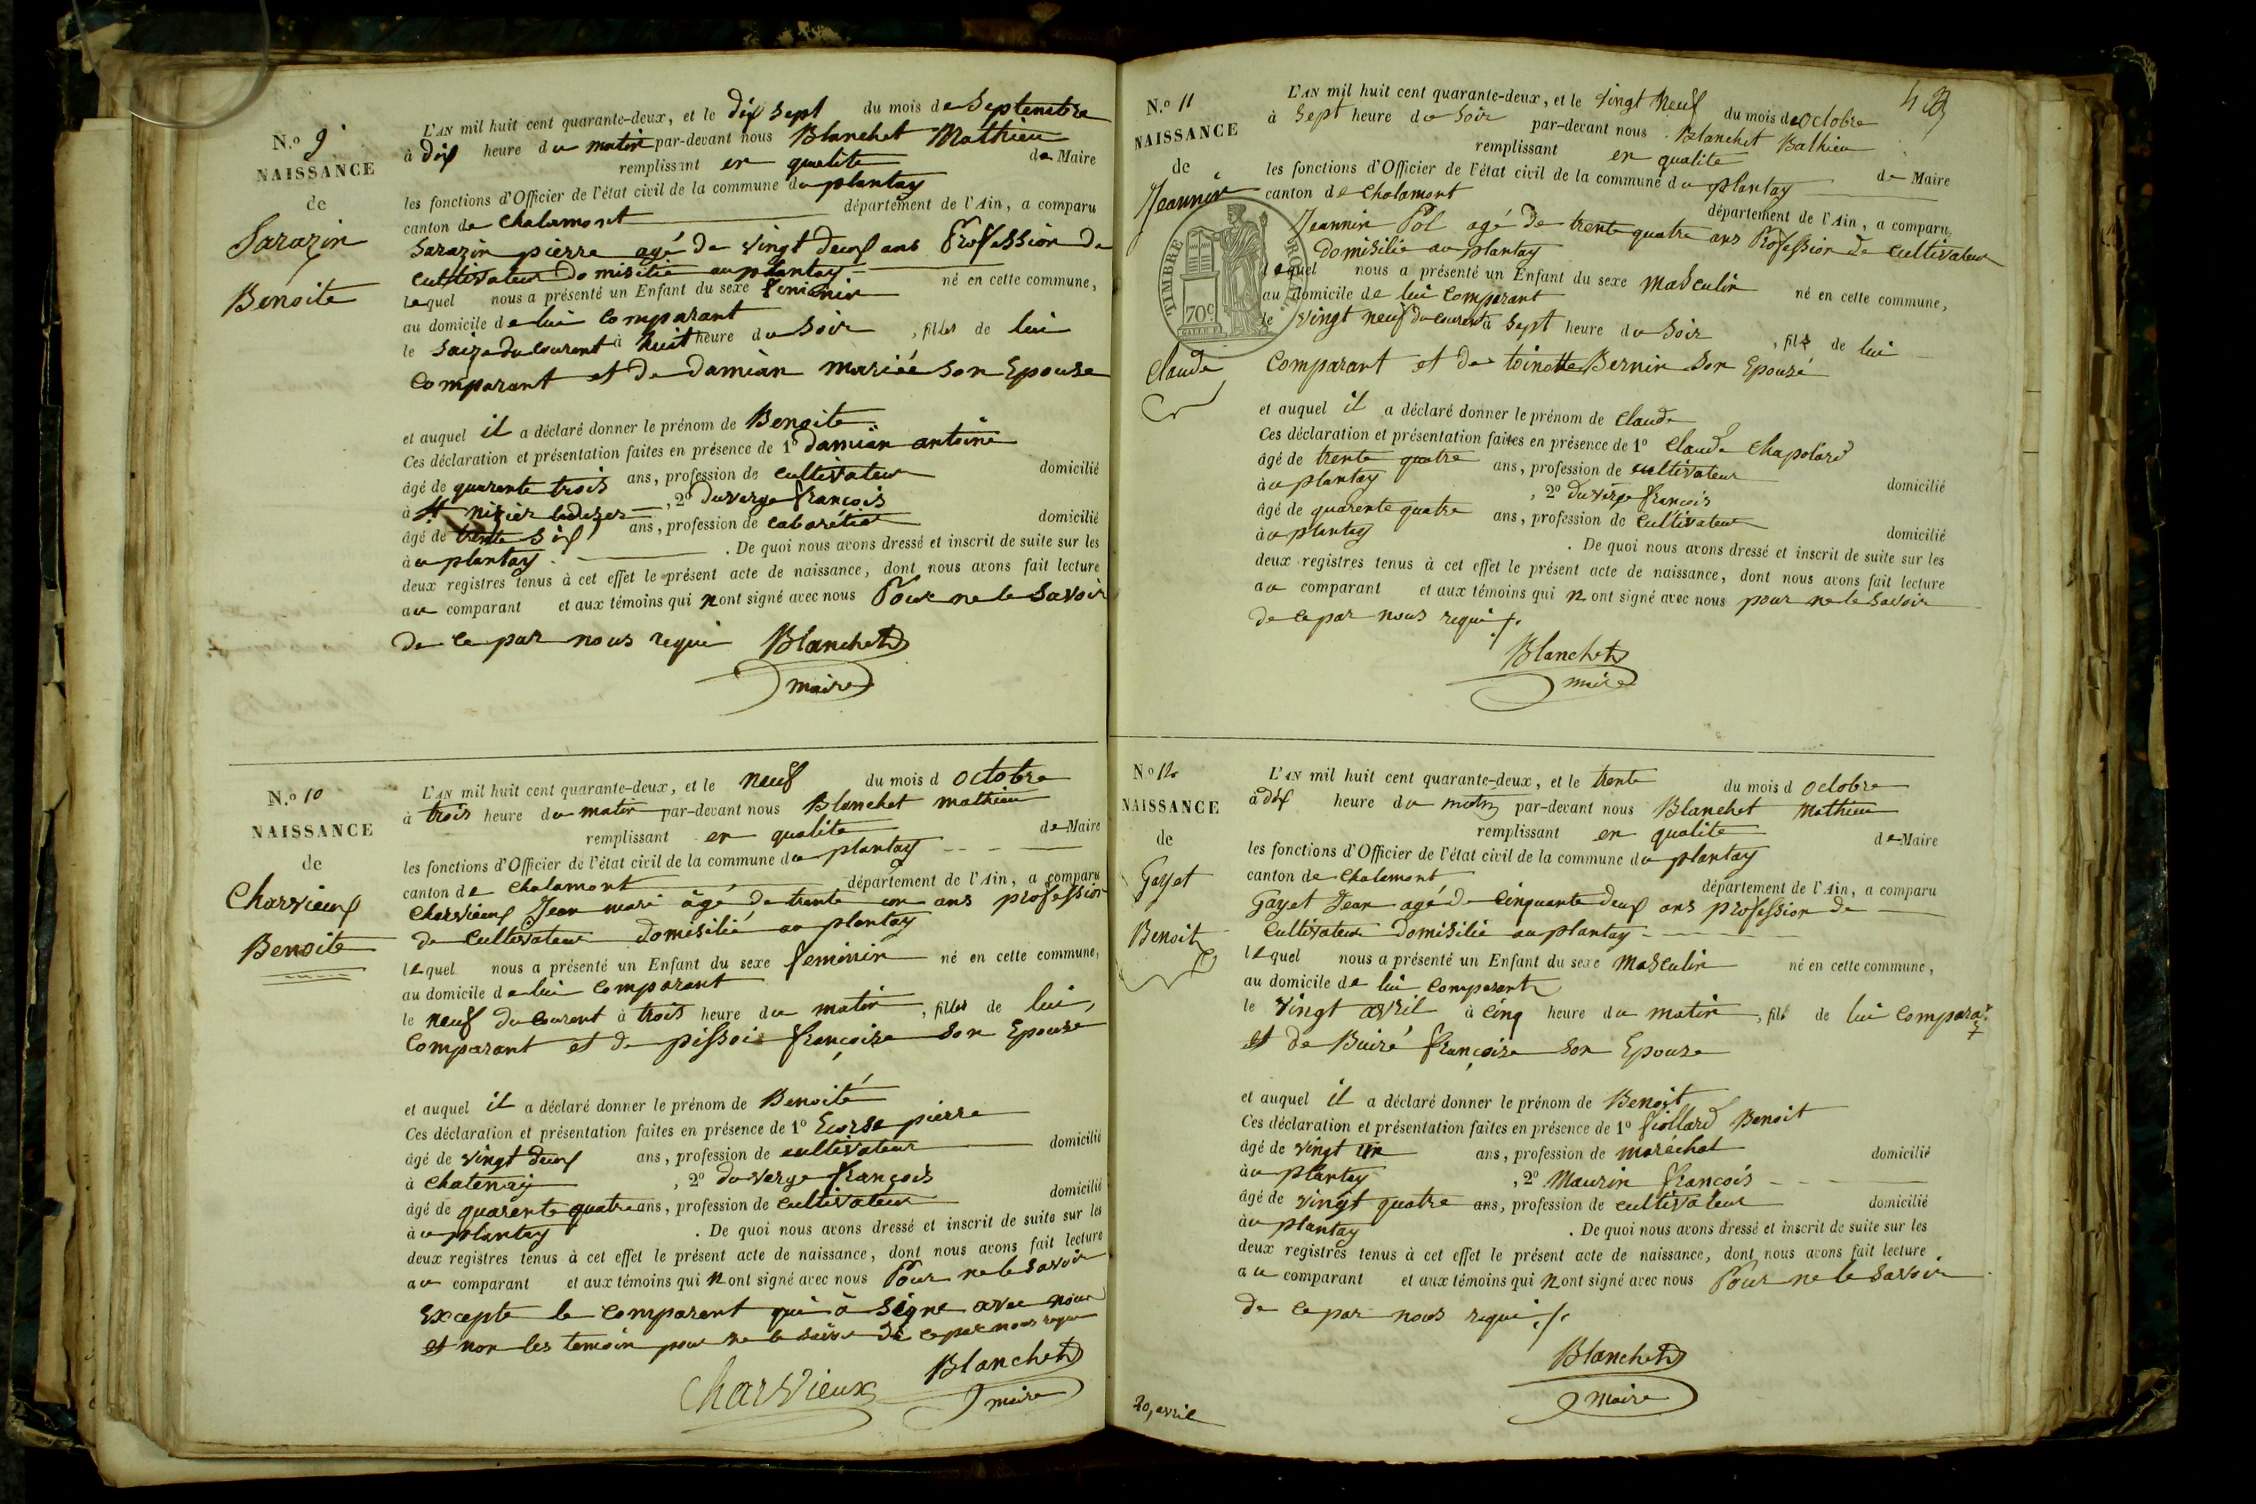 N.º 9
NAISSANCE
de
Sarazin
Benoite
L'AN mil huit cent quarante-deux, et le dix sept du mois de Septembre
à dix heure du matin par-devant nous Blanchet Mathieu
remplissant en qualité de Maire
les fonctions d'Officier de l'état civil de la commune du plantay
canton de Chalamont département de l'Ain, a comparu
Sarazin pierre agé de vingt deux ans Profession de
cultivateur domisilié au plantay
lequel nous a présenté un Enfant du sexe feminin né en cette commune,
au domicile de lui comparant
le saize du courent à huit heure du soir, filles de lui
comparant et de damian mariée son Epouse
et auquel il a déclaré donner le prénom de Benoite
Ces déclaration et présentation faites en présence de 1º damian antoine
âgé de quarente trois ans, profession de cultivateur domicilié
à St nizier, 2º duverge françois
âgé de trente six ans, profession de cabarétier domicilié
à au plantay. De quoi nous avons dressé et inscrit de suite sur les
deux registres tenus à cet effet le présent acte de naissance, dont nous avons fait lecture
au comparant et aux témoins qui n ont signé avec nous Pour ne le savoir
de ce par nous requi Blanchet
maire
N.º 10
NAISSANCE
de
Charvieux
Benoite
L'AN mil huit cent quarante-deux, et le neuf du mois d octobre
à trois heure du matin par-devant nous Blanchet mathieu
remplissant en qualite de Maire
les fonctions d'Officier de l'état civil de la commune du plantay
canton de Chalamont département de l'Ain, a comparu
Charvieux Jean mari âgé de trente un ans profession
de Cultivateur domisilié au plantay
lequel nous a présenté un Enfant du sexe feminin né en cette commune,
au domicile de lui comparant
le neuf du Courent à trois heure du matin, filles de lui,
Comparant et de françoise son Epousé
et auquel il a déclaré donner le prénom de Benoité
Ces déclaration et présentation faites en présence de 1º pierre
âgé de vingt deux ans, profession de cultivateur domicilié
à Chatenay, 2º duverge françois
âgé de quarente quatre ans, profession de cultivateur domicilié
à au plantay. De quoi nous avons dressé et inscrit de suite sur les
deux registres tenus à cet effet le présent acte de naissance, dont nous avons fait lecture
au comparant et aux témoins qui n ont signé avec nous Pour ne le savoir
Excepte le comparent qui à signe avec nous
et non les temoin pour ne le savoir de ce par nous requi
Charvieux Blanchet
maire
N.º 11
NAISSANCE
de
Jeannin
Claude
L'AN mil huit cent quarante-deux, et le vingt neuf du mois de octobre
à Sept heure du Soir par-devant nous Blanchet Mathieu
remplissant en qualite de Maire
les fonctions d'Officier de l'état civil de la commune du plantay
canton de Chalamont département de l'Ain, a comparu,
Jeannin Pol agé de trente quatre ans Profession de cultivateur
domisilié au plantay
lequel nous a présenté un Enfant du sexe masculin né en cette commune,
au domicile de lui comparant
le vingt neuf du courent à sept heure du soir, fils de lui
Comparant et de toinette Bernin son Epousé
et auquel il a déclaré donner le prénom de Claude
Ces déclaration et présentation faites en présence de 1º Claude Chapolard
âgé de trente quatre ans, profession de cultivateur domicilié
à au plantay, 2º duverge françois
âgé de quarente quatre ans, profession de Cultivateur domicilié
à au plantay. De quoi nous avons dressé et inscrit de suite sur les
deux registres tenus à cet effet le présent acte de naissance, dont nous avons fait lecture
au comparant et aux témoins qui n ont signé avec nous pour ne le savoir
de ce par nous requi
Blanchet
maire
TIMBRE ROYAL
70c
Nº 12
NAISSANCE
de
Gayet
Benoit
L'AN mil huit cent quarante-deux, et le trente du mois d octobre
à dix heure du matin par-devant nous Blanchet Mathieu
remplissant en qualite de Maire
les fonctions d'Officier de l'état civil de la commune du plantay
canton de Chalamont département de l'Ain, a comparu
Gayet Jean agé de Cinquante deux ans profession de
Cultivateur domisilié au plantay
lequel nous a présenté un Enfant du sexe masculin né en cette commune,
au domicile de lui comparant
le vingt avril à cinq heure du matin, fils de lui comparant
et de Buiré françoise son Epouse
et auquel il a déclaré donner le prénom de Benoit
Ces déclaration et présentation faites en présence de 1º fiollard Benoit
âgé de vingt un ans, profession de maréchal domicilié
à au plantay, 2º Maurin françois
âgé de vingt quatre ans, profession de cultivateur domicilié
à au plantay. De quoi nous avons dressé et inscrit de suite sur les
deux registres tenus à cet effet le présent acte de naissance, dont nous avons fait lecture
au comparant et aux témoins qui n ont signé avec nous Pour ne le savoir
de ce par nous requi
Blanchet
maire
20, avril